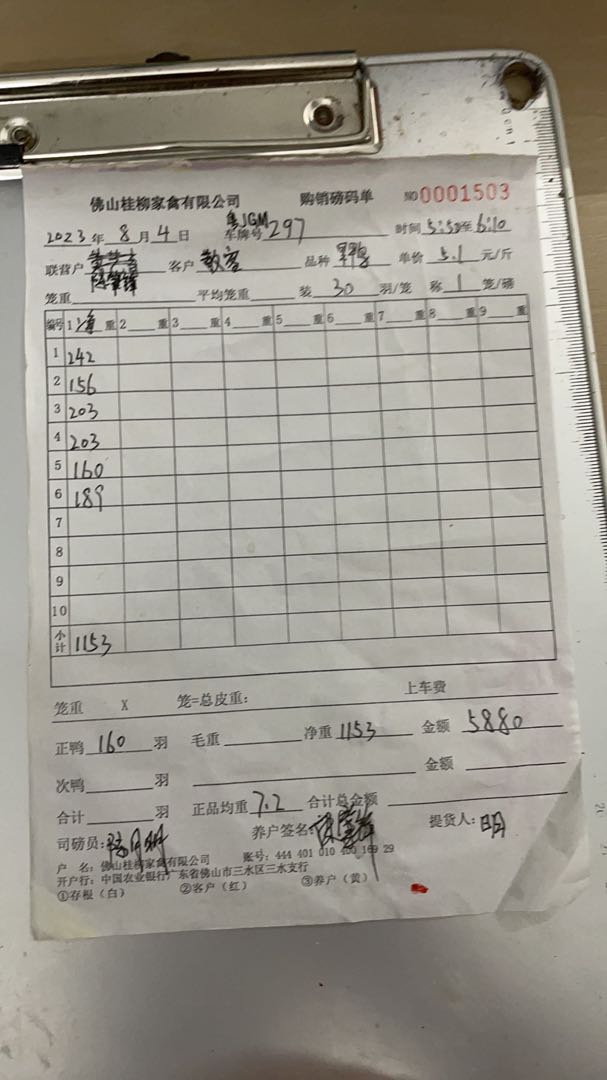 佛山桂柳家禽有限公司 购销磅码单 NO 0001503
2023年8月4日 车牌号 JGM297 时间 5:50至6:10
联营户 客户 散客 品种 单价 5.1 元/斤
笼重 平均笼重 装 30 羽/笼 称 1 笼/磅
编号 1 净 重 2 重 3 重 4 重 5 重 6 重 7 重 8 重 9 重
1 242
2 156
3 203
4 203
5 160
6 189
7
8
9
10
小计 1153
笼重 X 笼=总皮重: 上车费
正鸭 160 羽 毛重 净重 1153 金额 5880
次鸭 羽 金额
合计 羽 正品均重 7.2 合计总金额
司磅员: 养户签名: 提货人: 明
户 名: 佛山桂柳家禽有限公司 账号: 444 401 010 400 169 29
开户行: 中国农业银行广东省佛山市三水区三水支行
①存根（白） ②客户（红） ③养户（黄）